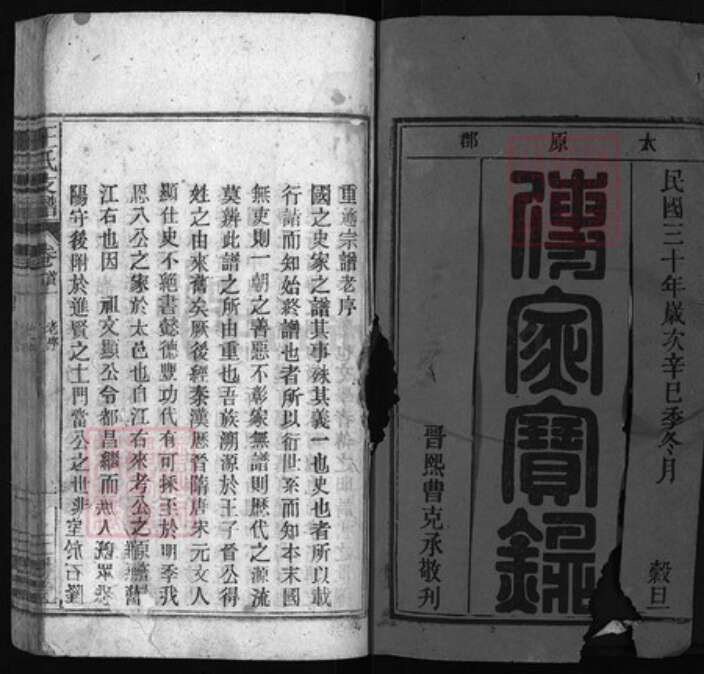 太原郡
民國三十年歲次辛巳季冬月 穀旦
傳家寶錄
晋熙曹克承敬刋
重遹宗譜老序
國之史家之譜其事殊其義一也史也者所以載
行誥而知始終譜也者所以衍世系而知本末國
無史則一朝之善惡不彰家無譜則歷代之源流
莫辨此譜之所由重也吾族溯源於王子晋公得
姓之由來舊矣厥後經秦漢歷晉隋唐宋元文人
顯仕史不絕書懿德豐功代有可採至於明季我
恩八公之家於太邑也自江右來考公之源籍舊
江右也因 祖文顯公令都昌繼而
陽守後附於進賢之土門當公之世非室
王氏支譜 卷首 老序